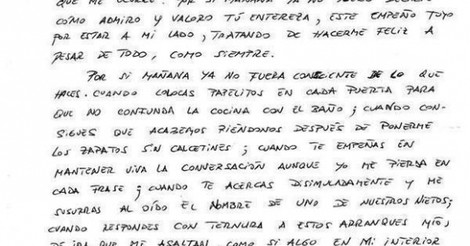 COMO ADMIRO Y VALORO TÚ ENTEREZA, ESTE EMPEÑO TUYO
POR ESTAR A MI LADO, TRATANDO DE HACERME FELIZ A
PESAR DE TODO, COMO SIEMPRE.
POR SI MAÑANA YA NO FUERA CONSCIENTE DE LO QUE
HACES. CUANDO COLOCAS PAPELITOS EN CADA PUERTA PARA
QUE NO CONFUNDA LA COCINA CON EL BAÑO; CUANDO CON-
SIGUES QUE ACABEMOS RIÉNDONOS DESPUÉS DE PONERME
LOS ZAPATOS SIN CALCETINES; CUANDO TE EMPEÑAS EN
MANTENER VIVA LA CONVERSACIÓN AUNQUE YO ME PIERDA EN
CADA FRASE; CUANDO TE ACERCAS DISIMULADAMENTE Y ME
SUSURRAS AL OÍDO EL NOMBRE DE UNO DE NUESTROS NIETOS;
CUANDO RESPONDES CON TERNURA A ESTOS ARRANQUES MÍO,
DE IRA QUE ME ASALTAN, COMO SI ALGO EN MI INTERIOR